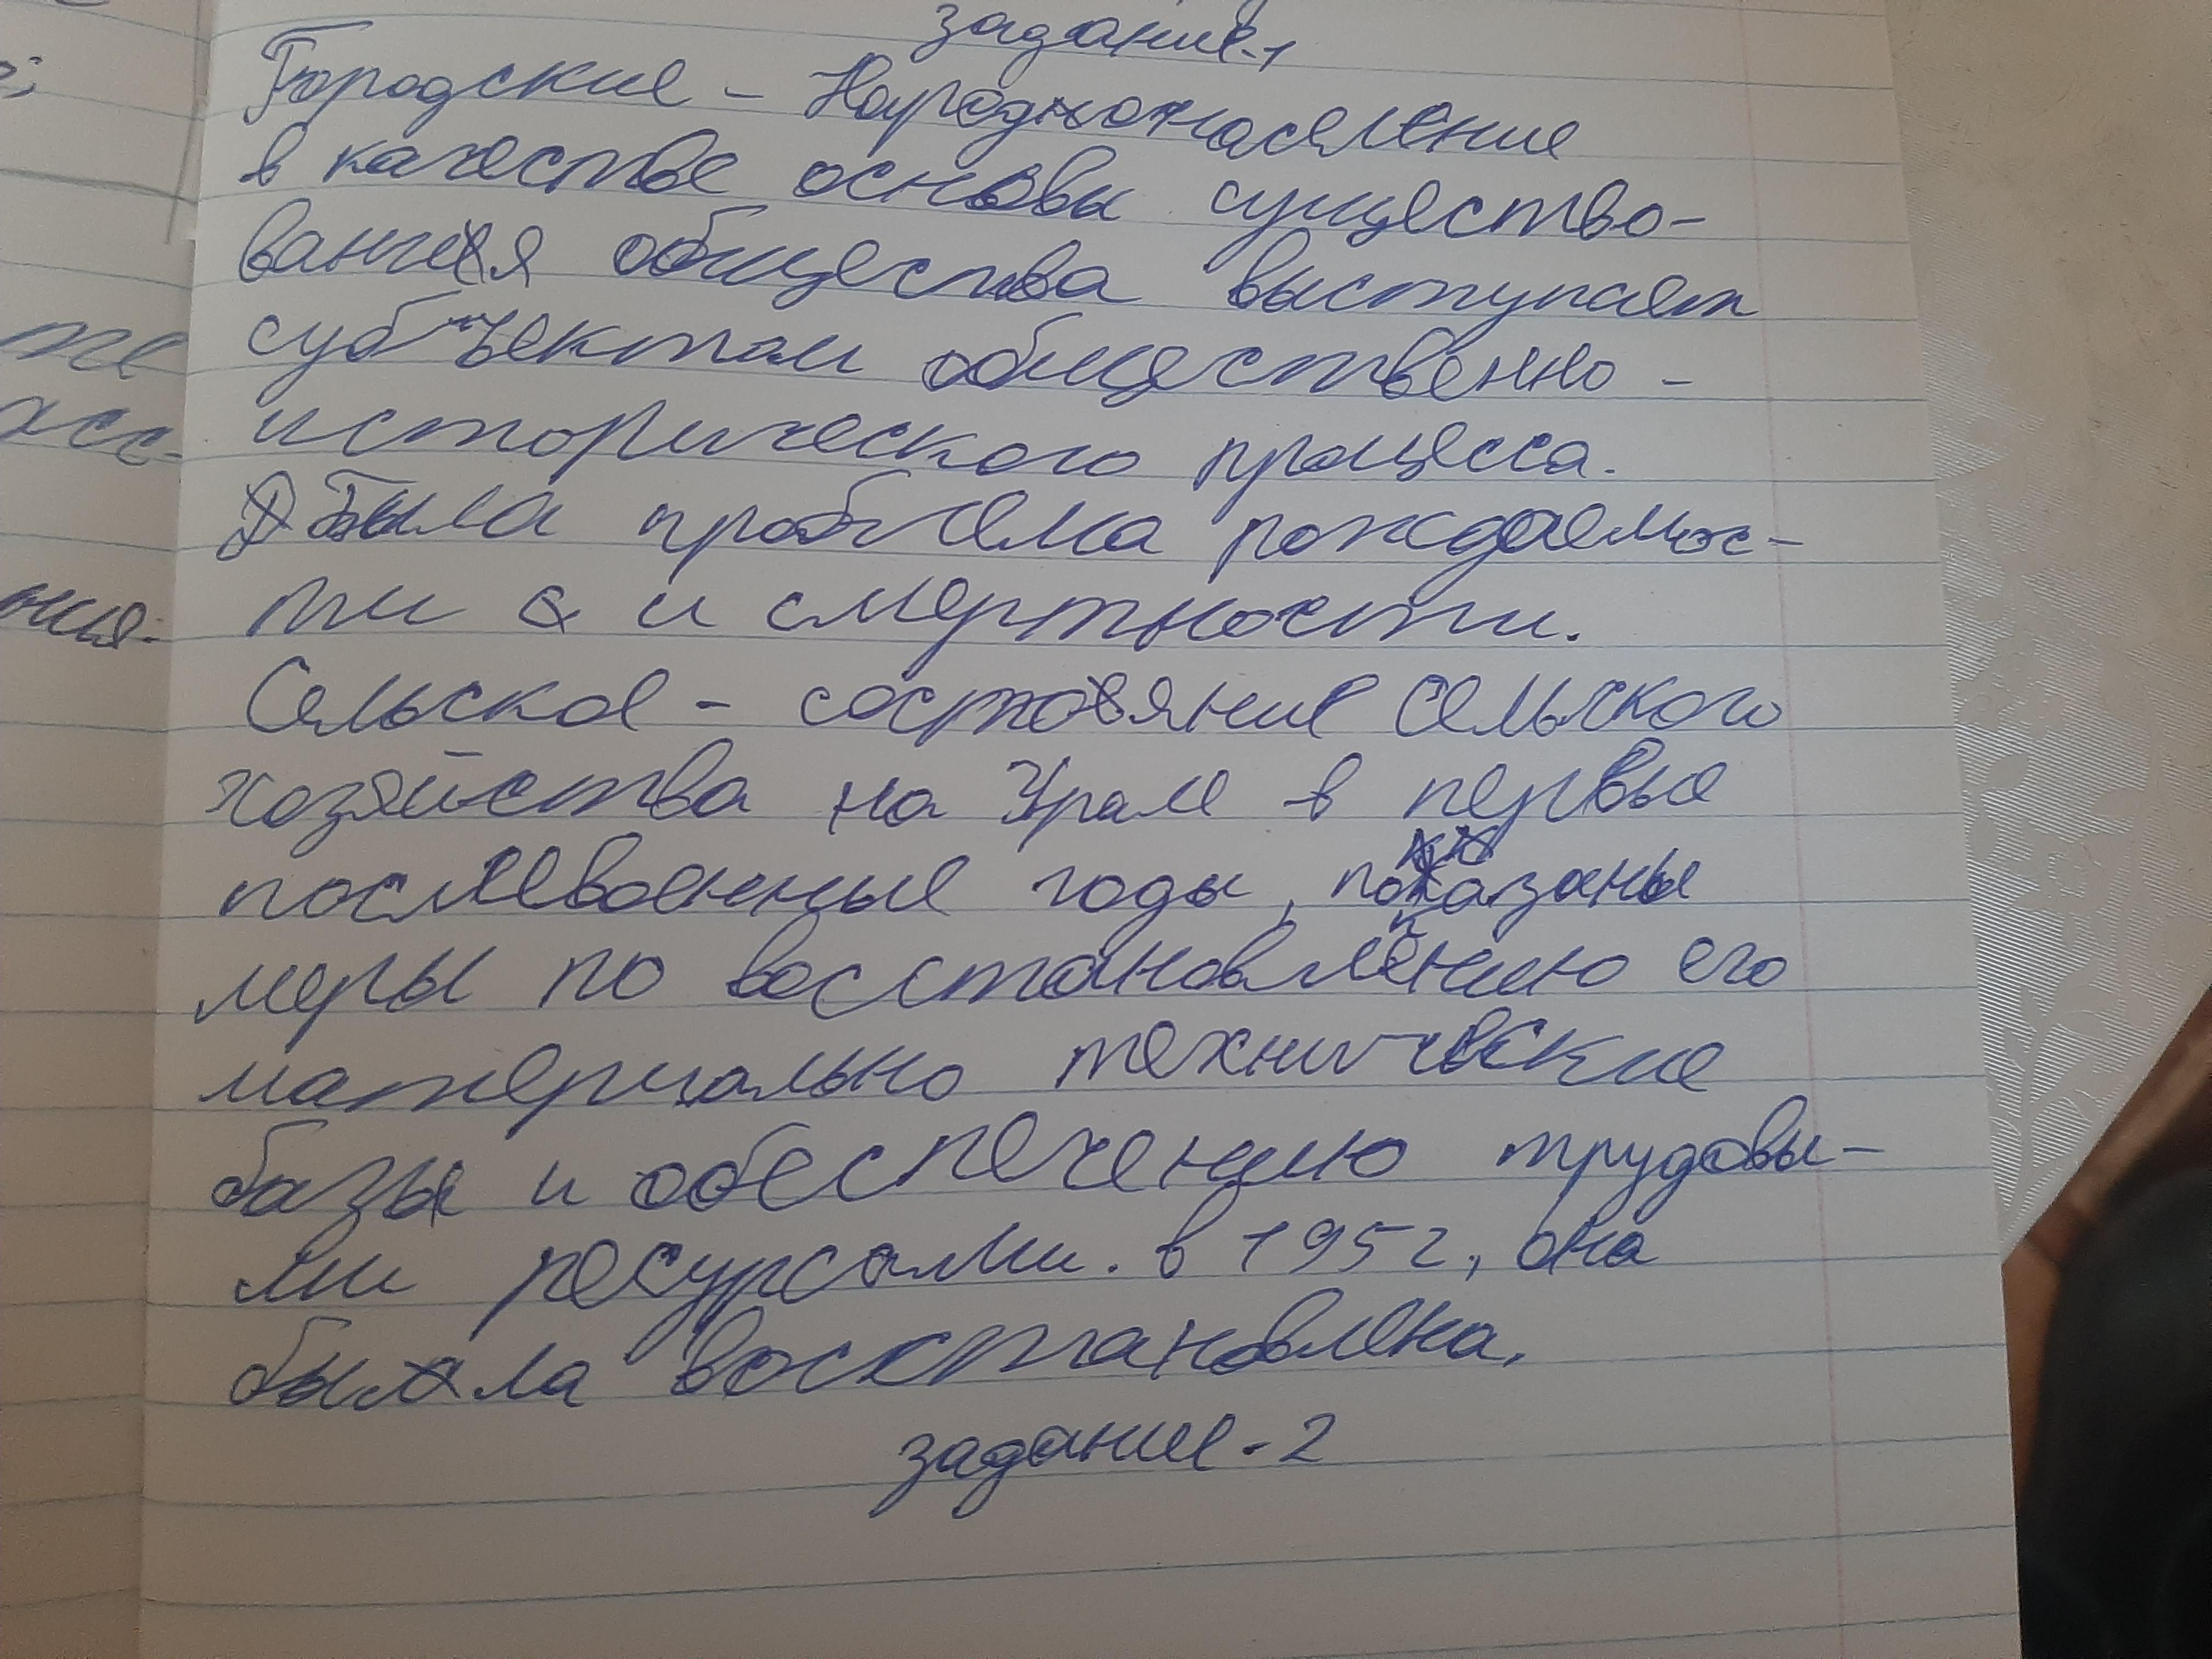 задание-1
Городские - Народонаселение
в качестве основы существо-
вания общества выступает
субъектом общественно -
исторического процесса.
Была проблема рождаемос-
ти и смертности.
Сельское - состояние сельского
хозяйства на Урале в первые
послевоенные годы, показаны
меры по восстановлению его
материально технические
базы и обеспечению трудовы-
ми ресурсами. в 195 г., она
была восстановлена.
задание - 2